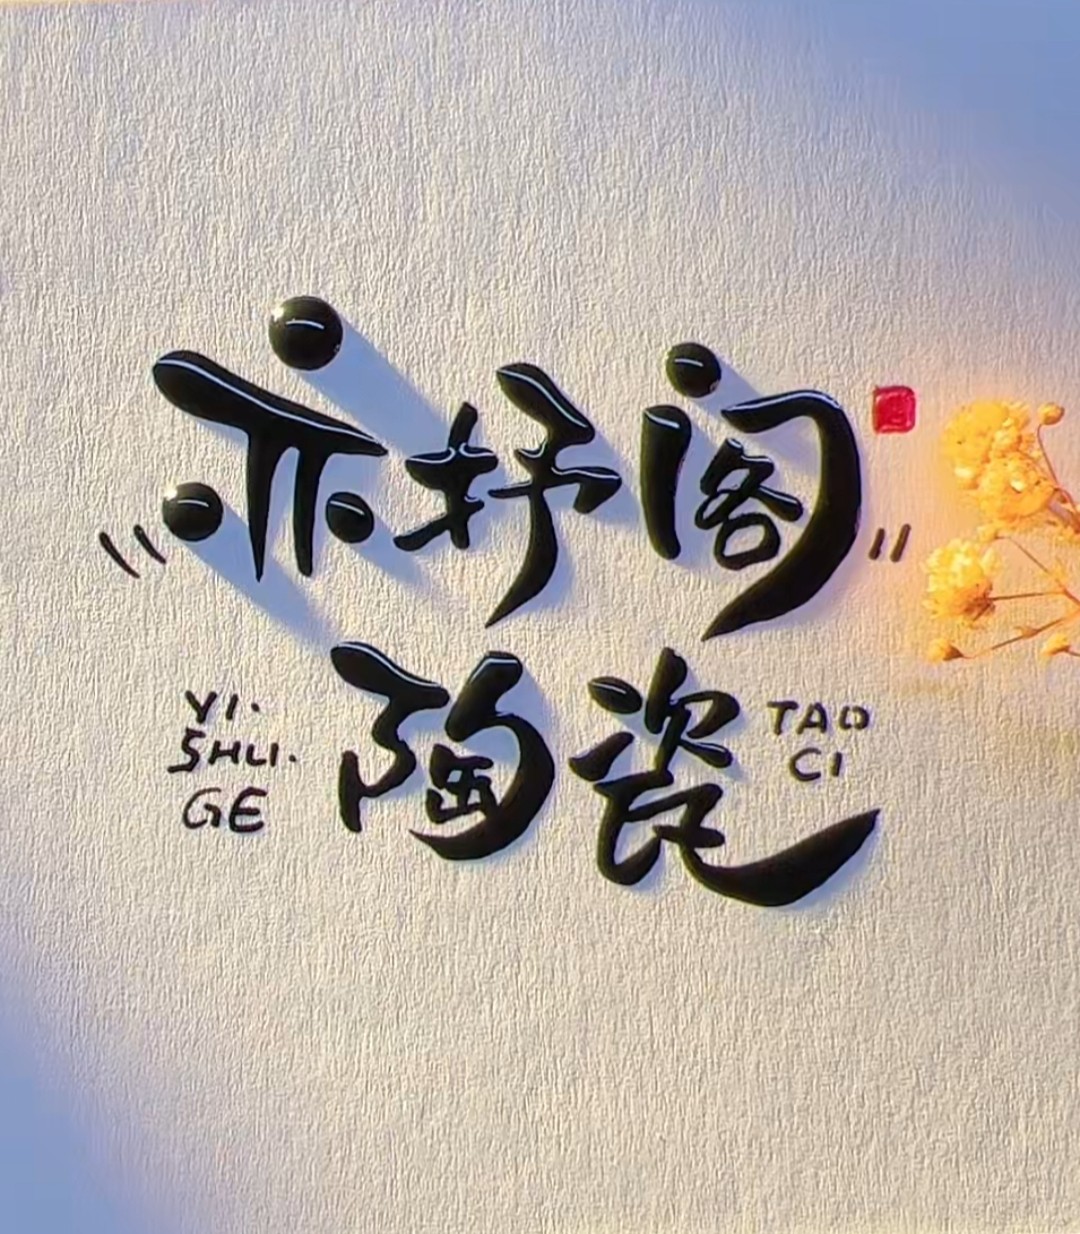 亦抒阁
陶瓷
YI·
SHU·
GE
TAO
CI